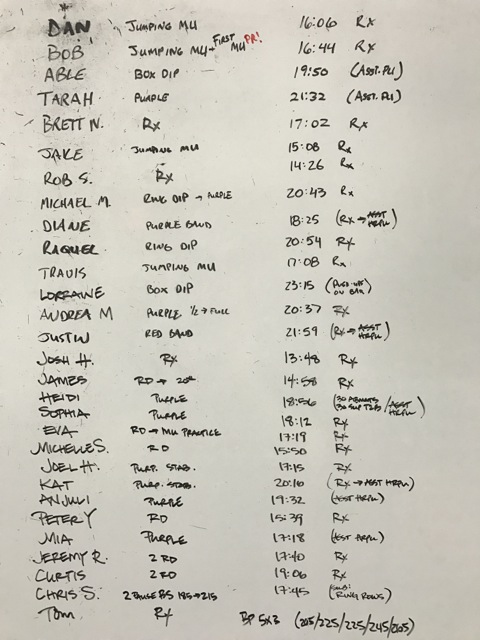 DAN JUMPING MU 16:06 Rx
BOB JUMPING MU + FIRST MU PR! 16:44 Rx
ABLE BOX DIP 19:50 (ASST. PU)
TARAH PURPLE 21:32 (ASST. PU)
BRETT N. Rx 17:02 Rx
JAKE JUMPING MU 15:08 Rx
ROB S. Rx 14:26 Rx
MICHAEL M. RING DIP → PURPLE 20:43 Rx
DIANE PURPLE BAND 18:25 (Rx → ASST HRPU)
RAQUEL RING DIP 20:54 Rx
TRAVIS JUMPING MU 17:08 Rx
LORRAINE BOX DIP 23:15 (PUSH-UPS ON BAR)
ANDREA M PURPLE 1/2 → FULL 20:37 Rx
JUSTIN RED BAND 21:59 (Rx → ASST HRPU)
JOSH H. Rx 13:48 Rx
JAMES RD → 14:58 Rx
HEIDI PURPLE 18:56 (30 ABMATS / 30 SUP T2B / ASST HRPU)
SOPHIA PURPLE
EVA RD → MU PRACTICE 18:12 Rx
MICHELLE S. RD 17:19 Rx
15:50 Rx
JOEL H. PURP. STAB. 17:15 Rx
KAT PURP. STAB. 20:10 (Rx → ASST HRPU)
ANJULI PURPLE 19:32 (ASST HRPU)
PETER Y RD 15:39 Rx
MIA PURPLE 17:18 (ASST HRPU)
JEREMY R. 2 RD 17:40 Rx
CURTIS 2 RD 19:06 Rx
CHRIS S. 2 PAUSE BS 185 → 215 17:45 (SUB: RING ROWS)
TOM Rx BP 5x3 (205/225/225/245/265)